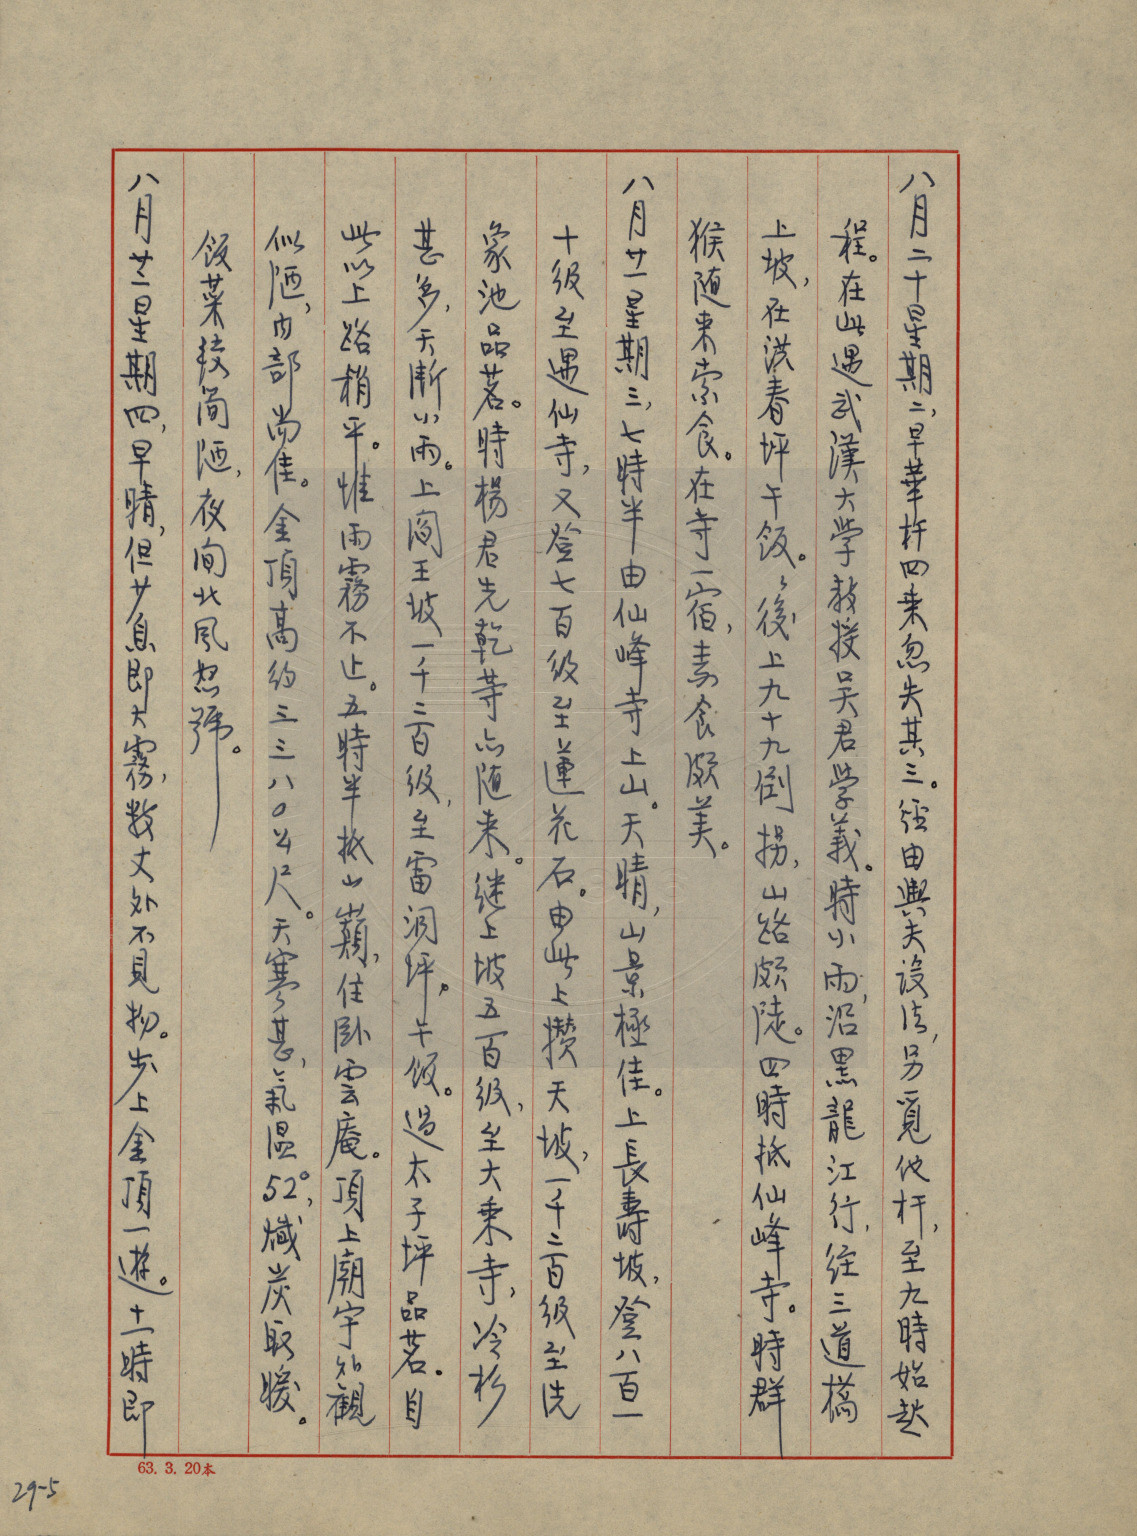 八月二十星期二,早華杆四来忽失其三。經由輿夫設法,另覓他杆,至九時始起
程。在此遇武漢大学教授吴君学義。時小雨,沿黑龍江行,经三道橋
上坡,在洪春坪午饭。後上九十九倒拐,山路頗陡。四時抵仙峰寺。時群
猴随来索食。在寺一宿,素食頗美。
八月廿一星期三,七時半由仙峰寺上山。天晴,山景極佳。上長壽坡,登八百一
十级至遇仙寺,又登七百级至蓮花石。由此上攒天坡,一千二百级至洗
象池品茗。時楊君先乾等亦随来。继上坡五百级,至大乘寺,冷杉
甚多,天漸小雨。上阎王坡一千二百级,至雷洞坪。午饭。過太子坪品茗。自
此以上路梢平。惟雨霧不止。五時半抵山巔,住卧雲庵。頂上廟宇外觀
似陋,内部尚佳。金頂高约三三八〇公尺。天寒甚,氣温52°,熾炭取暖。
饭菜较简陋,夜间北风怒號。
八月廿二星期四,早晴,但少息即大霧,数丈外不見物。步上金頂一遊。十一時即
63. 3. 20本
29-5